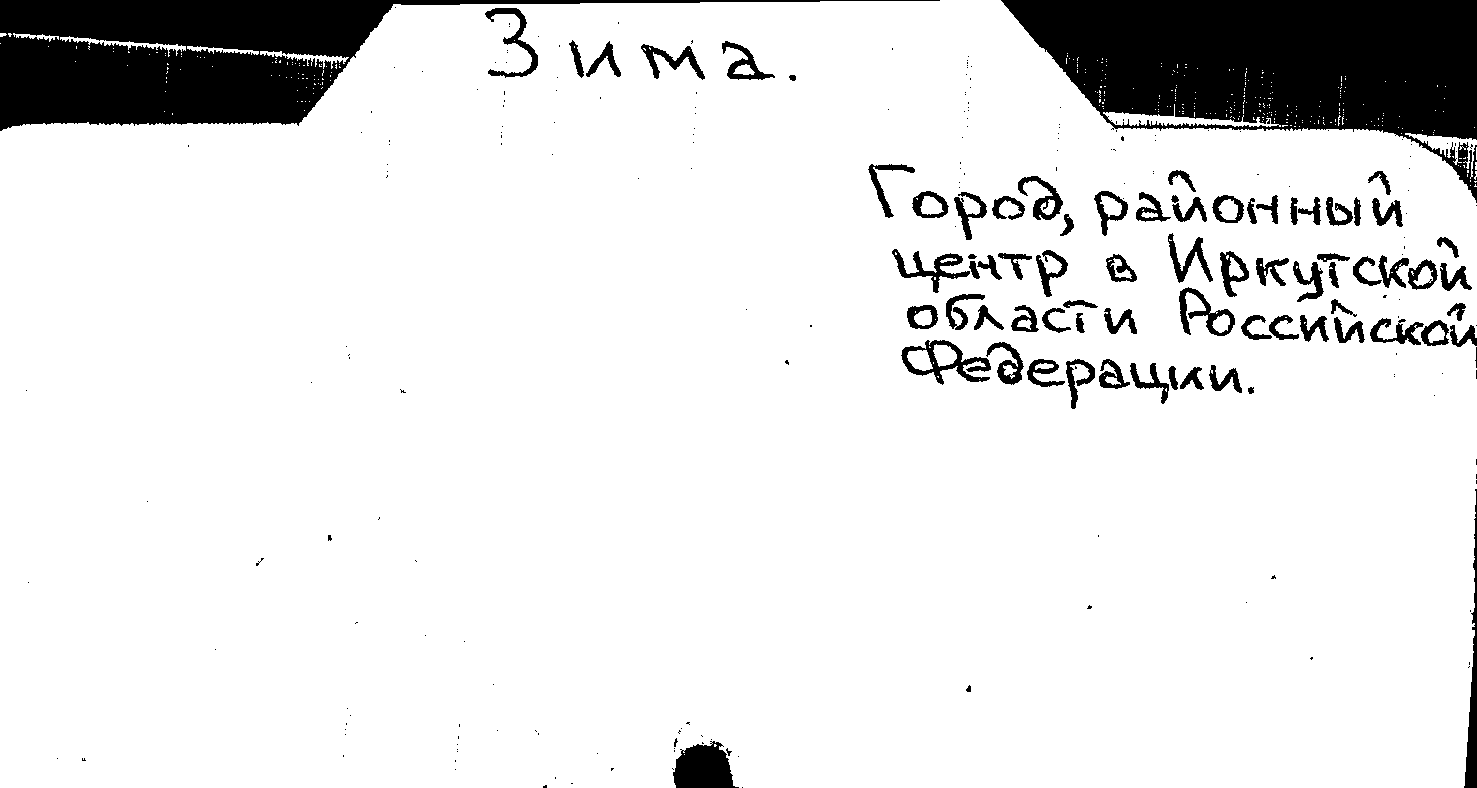 Зима.
Город, районный
центр в Иркутской
области Российской
Федерации.